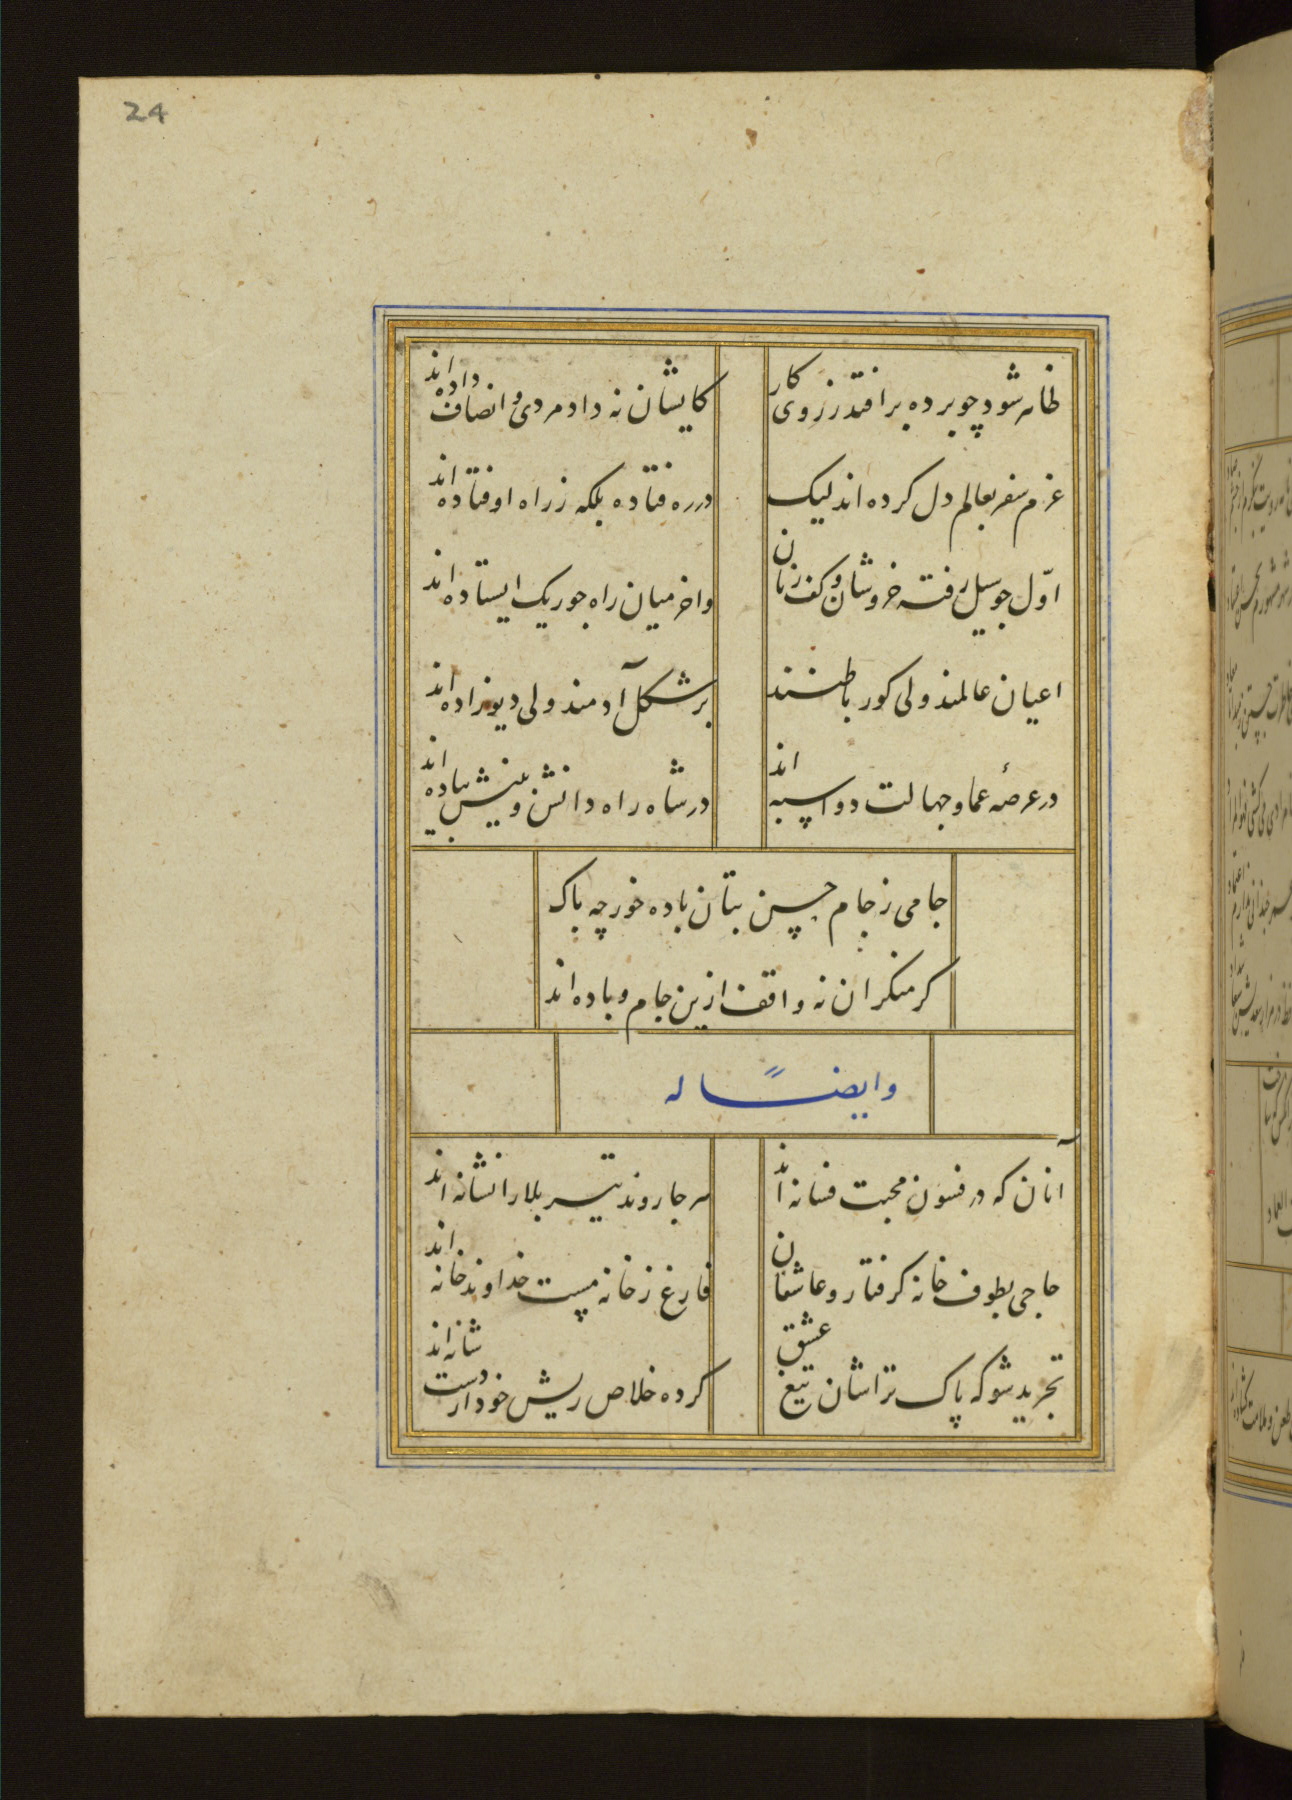 24
ظاهر شود چو پرده برافتد ز روی کار
کایشان نه داد مردی و انصاف داده اند
عزم سفر بعالم دل کرده اند لیک
در ره فتاده بلکه ز راه اوفتاده اند
اوّل جو سیل رفته خروشان و کف زنان
واخر میان راه جو ریک ایستاده اند
اعیان عالمند ولی کور باطنند
بر شکل آدمند ولی دیوزاده اند
در عرصهٔ عما و جهالت دو اسپه اند
در شاه راه دانش و بینش پیاده اند
جامی ز جام حسن بتان باده خور چه باک
کر منکران نه واقف ازین جام و باده اند
وایضاً له
آنان که در فسون محبت فسانه اند
هر جا روند تیر بلا را نشانه اند
حاجی بطوف خانه کرفتار و عاشقان
فارغ ز خانه مست خداوند خانه اند
تجرید شو که پاک تراشان تیغ عشق
کرده خلاص ریش خود از دست شانه اند